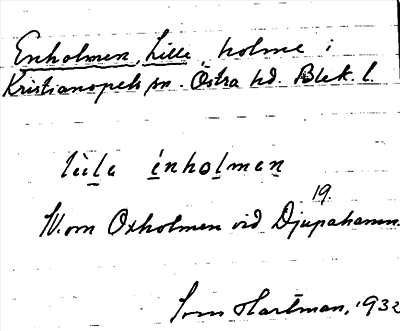 Enholmen, Lille, holme i
Kristianopels sn. Östra hd. Blek. l.
lìla ènholmen
19.
W. om Oxholmen vid Djupahamn.
Hartman, 1932